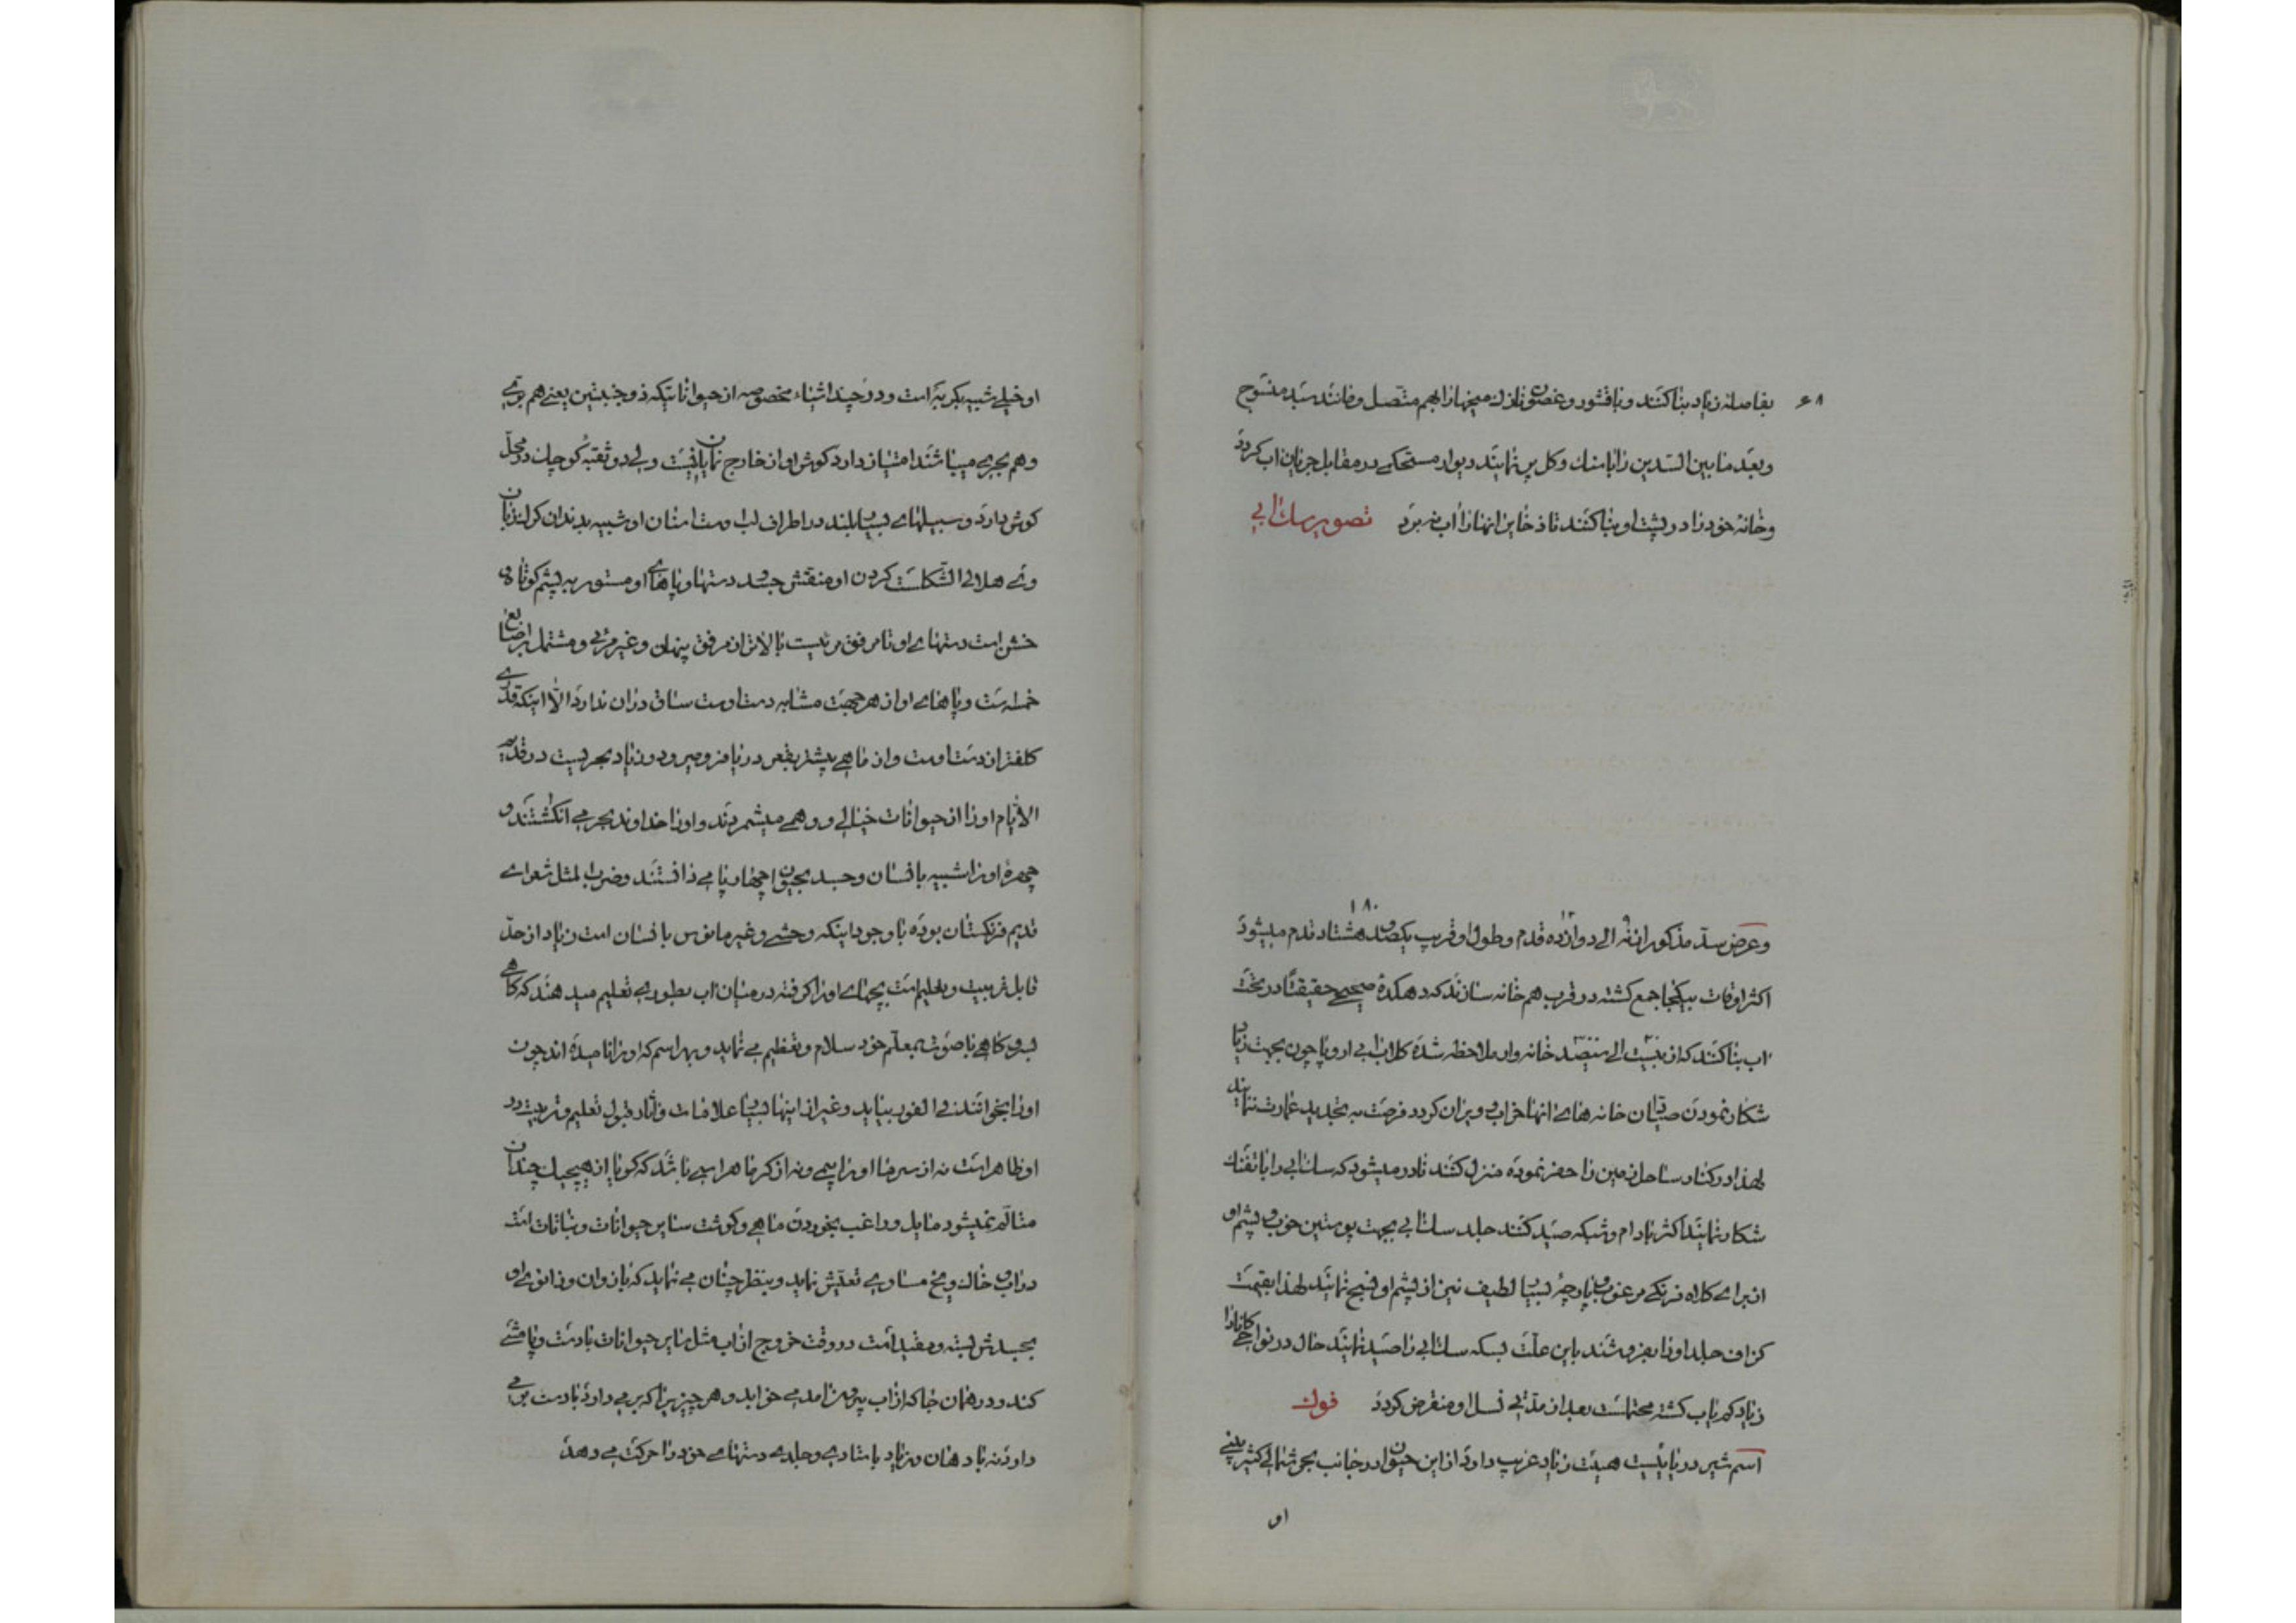 ۶۸
بفاصله زیاد بنا کنند و با قشور و غصون نازک میخها را بهم متصل و مانند سبد منسوج
و بعد مابین السدین را با سنک و کل پر نمایند دیوار مستحکمی در مقابل جریان اب کردد
و خانه خود را در پشت او بنا کنند تا ذخایر انها را اب نبرد تصویر سک ابی
۱۸۰
و عرض سد مذکور از نه الی دوازده قدم و طول او قریب یکصد و هشتاد قدم میشود
اکثر اوقات بیکجا جمع کشته در قرب هم خانه سازند که دهکدهٔ صحیحی حقیقتاً در تحت
اب بنا کنند که از بیست الی سیصد خانه وار ملاحظه شده کلاب ابی اروپا چون بجهت زیاد
شکار نمودن صیادان خانه های انها خراب و ویران کردد فرصت به تجدید عمارت ننمایند
لهذا در کنار ساحل زمین را حفر نموده منزل کنند نادر میشود که سک ابی را با تفنک
شکار نمایند اکثر با دام و شبکه صید کنند جلد سک ابی بجهت پوستین خوب و پشم او
از برای کلاه فرنکی مرغوب و پارچهٔ بسیار لطیف نیز از پشم او نسج نمایند لهذا بقیمت
کزاف جلد او را بفروشند باین علت بسکه سک ابی را صید نمایند حال در نواحی کانادا
زیاد کم یاب کشته محتملست بعد از مدتی نسل او منقرض کردد فوک
اسم شیر دریائیست هیئت زیاد غریب دارد از این حیوان در جانب بحر شمالی کثیر بینی
او
او خیلی شبیه بکربه است و در چند اشیاء مخصوصه از حیواناتیکه ذو جنبتین یعنی هم بری
و هم بحری میباشند امتیاز دارد کوش او از خارج نمایان نیست ولی دو ثقبه کوچک در محل
کوش دارد و سبیلهای بسیار بلند در اطراف لب اوست اسنان او شبیه بدندان کرک زبان
وی هلالی الشکلست کردن او منقش جسد دستها و پاهای او مستور به پشم کوتاه
خشن است دستهای او تا مرفق مرئیست بالاتر از مرفق پنهان و غیر مرئی و مشتمل بر اصابع
خمسه ست و پاهای او از هر جهت مشابه دست اوست ساق دران ندارد الا اینکه قدری
کلفتر از دست اوست و از ماهی بیشتر بقعر دریا فرو میرود و زیاد بحریست در قدیم
الایام او را از حیوانات خیالی و وهمی میشمردند و او را خداوند بحر می انکاشتند و
چهرهٔ او را شبیه بانسان و جسد بحیوان چهار پا می دانستند و ضرب المثل شعرای
قدیم فرنکستان بوده با وجود اینکه وحشی و غیر مانوس بانسان است زیاد از حد
قابل تربیت و تعلیم است بچهای او را کرفته در میان اب بطوری تعلیم میدهند که کاهی
بسر و کاهی با صوت بمعلم خود سلام و تعظیم می نماید و بهر اسم که او را نامیده اند چون
او را بخوانند فی الفور بیاید و غیر از اینها بسیار علامات و اثار قبول تعلیم و تربیت در
او ظاهر است نه از سرما او را بیمی و نه از کرما هراسی باشد که کویا از هیچیک چندان
متالم نمیشود مایل و راغب بخوردن ماهی و کوشت سایر حیوانات و نباتات است
در اب و خاک و یخ مساوی تعیش نماید و بنظر چنان می نماید که بازوان و زانوی او
بجسدش بسته و مقید است در وقت خروج از اب مثل سایر حیوانات با دست و پا مشی
کند و در همان جا که از اب بیرون امد می خوابد و هر چیزیرا که بر می دارد با دست بر می
دارد نه با دهان و زیاد با متادی و جلدی دستهای خود را حرکت می دهد